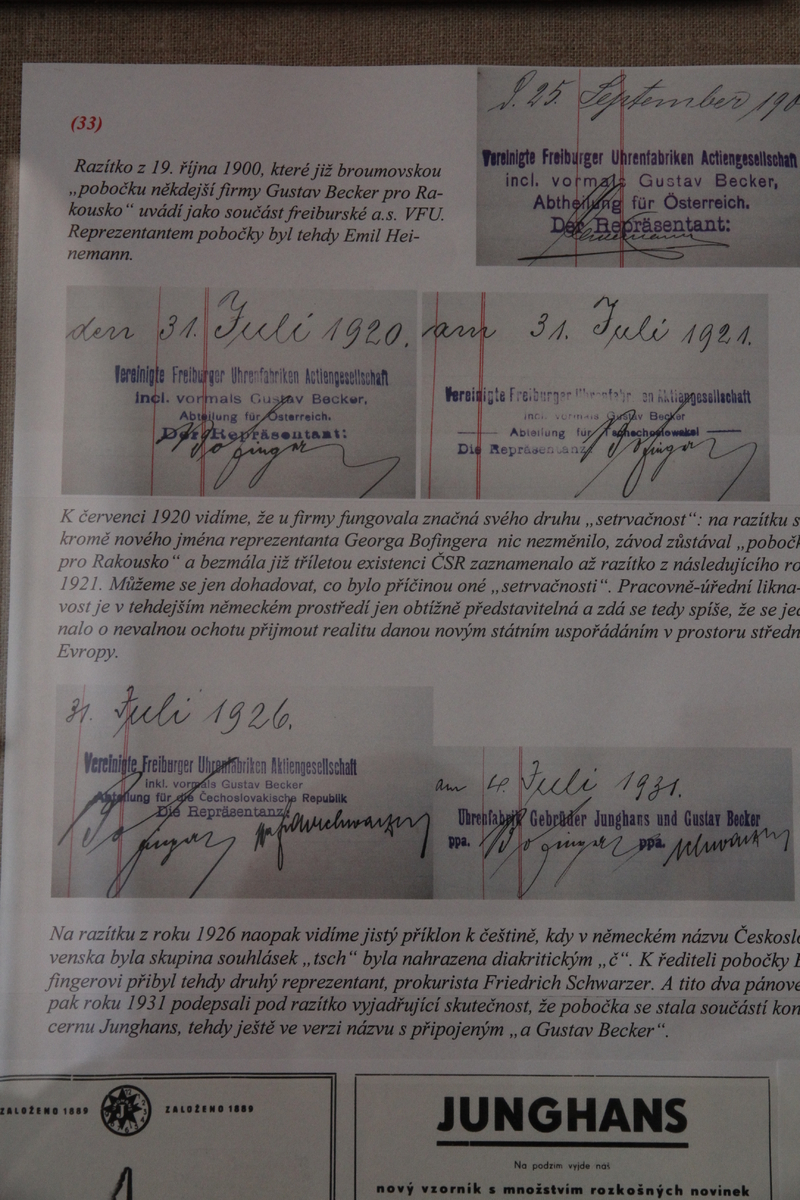 (33)
Razítko z 19. října 1900, které již broumovskou
„pobočku někdejší firmy Gustav Becker pro Ra-
kousko“ uvádí jako součást freiburské a.s. VFU.
Reprezentantem pobočky byl tehdy Emil Hei-
nemann.
25. September 190
Vereinigte Freiburger Uhrenfabriken Actiengesellschaft
incl. vormals Gustav Becker,
Abtheilung für Österreich.
Der Repräsentant:
den 31. Juli 1920.
Vereinigte Freiburger Uhrenfabriken Actiengesellschaft
incl. vormals Gustav Becker,
Abteilung für Österreich.
Der Repräsentant:
Bofinger
am 31. Juli 1921.
Vereinigte Freiburger Uhrenfabr en Aktiengesellschaft
incl. vormals Gustav Becker
Abteilung für Tschechoslowakei
Die Repräsentanz
Bofinger
K červenci 1920 vidíme, že u firmy fungovala značná svého druhu „setrvačnost“: na razítku s
kromě nového jména reprezentanta Georga Bofingera nic nezměnilo, závod zůstával „poboč
pro Rakousko“ a bezmála již tříletou existenci ČSR zaznamenalo až razítko z následujícího ro
1921. Můžeme se jen dohadovat, co bylo příčinou oné „setrvačnosti“. Pracovně-úřední likna-
vost je v tehdejším německém prostředí jen obtížně představitelná a zdá se tedy spíše, že se jed
nalo o nevalnou ochotu přijmout realitu danou novým státním uspořádáním v prostoru středn
Evropy.
31. Juli 1926.
Vereinigte Freiburger Uhrenfabriken Aktiengesellschaft
inkl. vormals Gustav Becker
Abteilung für die Čechoslovakische Republik
Die Repräsentanz
Bofinger Schwarzer
am 4. Juli 1931.
Uhrenfabrik Gebrüder Junghans und Gustav Becker
ppa. Bofinger ppa. Schwarzer
Na razítku z roku 1926 naopak vidíme jistý příklon k češtině, kdy v německém názvu Českoslo
venska byla skupina souhlásek „tsch“ byla nahrazena diakritickým „č“. K řediteli pobočky B
fingerovi přibyl tehdy druhý reprezentant, prokurista Friedrich Schwarzer. A tito dva pánové
pak roku 1931 podepsali pod razítko vyjadřující skutečnost, že pobočka se stala součástí kon
cernu Junghans, tehdy ještě ve verzi názvu s připojeným „a Gustav Becker“.
ZALOŽENO 1889 ZALOŽENO 1889
JUNGHANS
Na podzim vyjde náš
nový vzorník s množstvím rozkošných novinek